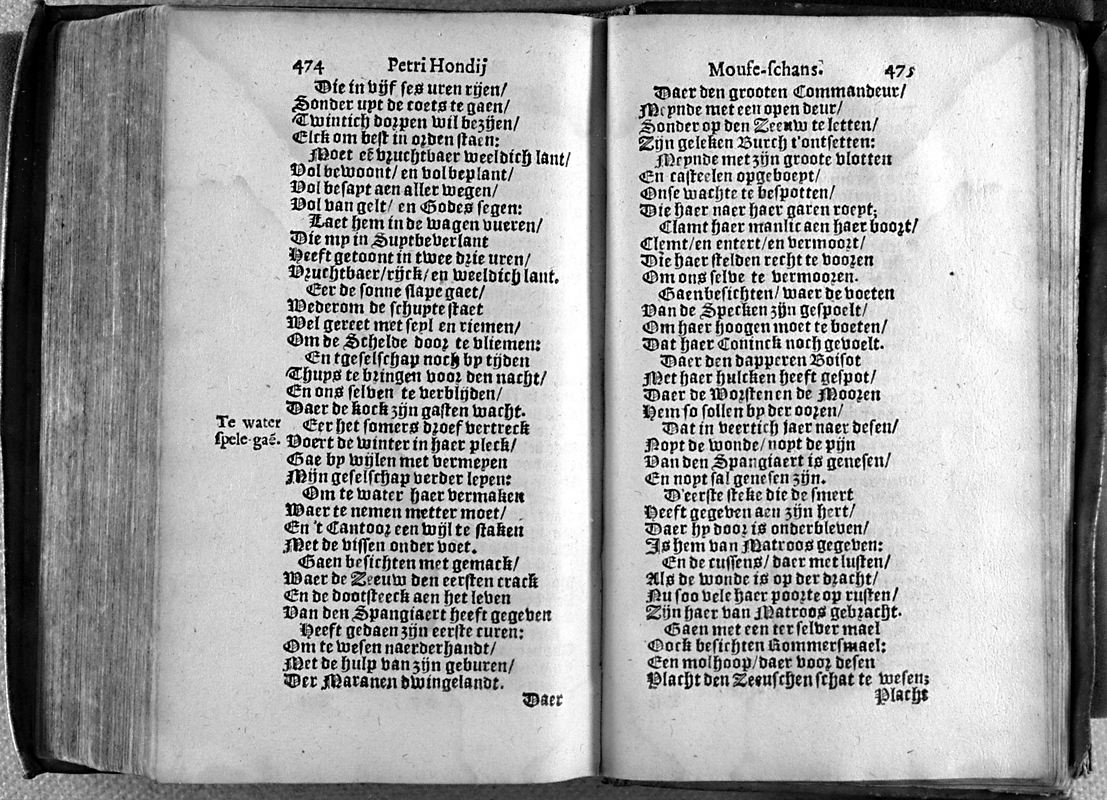 474 Petri Hondij
Die in vijf ses uren rijen/
Sonder uyt de coets te gaen/
Twintich dorpen wil bezijen/
Elck om best in orden staen:
Moet eẽ vruchtbaer weeldich lant/
Vol bewoont/ en vol beplant/
Vol besayt aen aller wegen/
Vol van gelt/ en Godes segen:
Laet hem in de wagen vueren/
Die my in Suytbeverlant
Heeft getoont in twee drie uren/
Vruchtbaer/rijck/en weeldich lant.
Eer de sonne slape gaet/
Wederom de schuyte staet
Wel gereet met seyl en riemen/
Om de Schelde door te vliemen:
En tgeselschap noch by tijden
Thuys te bringen voor den nacht/
En ons selven te verblijden/
Daer de kock zijn gasten wacht.
Te water
spele-gaẽ.
Eer het somers droef vertreck
Voert de winter in haer pleck/
Gae by wijlen met vermeyen
Mijn geselschap verder leyen:
Om te water haer vermaken
Waer te nemen metter moet/
En 't Cantoor een wijl te staken
Met de vissen onder voet.
Gaen besichten met gemack/
Waer de Zeeuw den eersten crack
En de dootsteeck aen het leven
Van den Spangiaert heeft gegeven
Heeft gedaen zijn eerste curen:
Om te wesen naerderhandt/
Met de hulp van zijn geburen/
Der Maranen dwingelandt.
Daer
Mouse-schans. 475
Daer den grooten Commandeur/
Meynde met een open deur/
Sonder op den Zeeuw te letten/
Zijn geleken Burch t'ontsetten:
Meynde met zijn groote vlotten
En casteelen opgeboeyt/
Onse wachte te bespotten/
Die haer naer haer garen roeyt;
Clamt haer manlic aen haer boort/
Clemt/en entert/en vermoort/
Die haer stelden recht te vooren
Om ons selve te vermooren.
Gaen besichten/ waer de voeten
Van de Specken zijn gespoelt/
Om haer hoogen moet te boeten/
Dat haer Coninck noch gevoelt.
Daer den dapperen Boisot
Met haer hulcken heeft gespot/
Daer de Worsten en de Mooren
Hem so sollen by der ooren/
Dat in veertich jaer naer desen/
Noyt de wonde/ noyt de pijn
Van den Spangiaert is genesen/
En noyt sal genesen zijn.
D'eerste steke die de smert
Heeft gegeven aen zijn hert/
Daer hy door is onderbleven/
Is hem van Matroos gegeven:
En de cussens/ daer met lusten/
Als de wonde is op der dracht/
Nu soo vele haer poorte op rusten/
Zijn haer van Matroos gebracht.
Gaen met een ter selver mael
Oock besichten Rommerswael:
Een molhoop/daer voor desen
Placht den Zeeuschen schat te wesen;
Placht